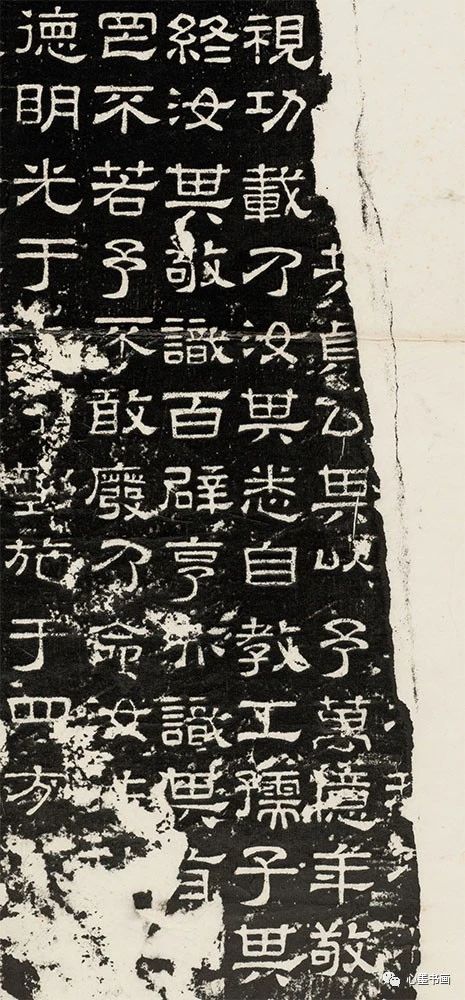 共貞公其以予萬億年敬
視功載乃汝其悉自教工孺子其
終汝其敬識百辟享亦識其有
罔不若予不敢廢乃命汝往
德明光于勤施于四方
心畫书画